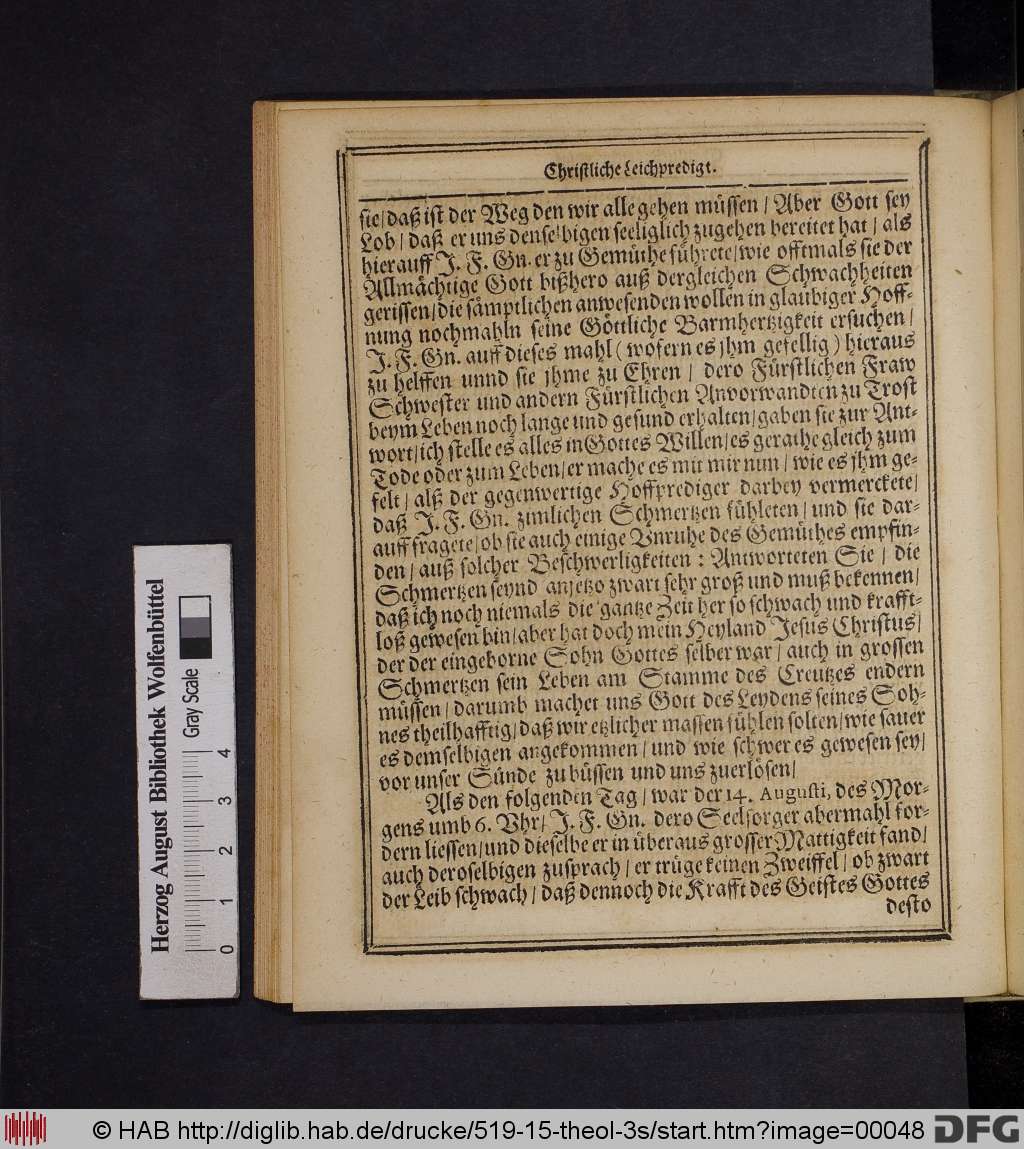 Christliche Leichpredigt.
sie/ daß ist der Weg den wir alle gehen müssen/ Aber Gott sey
Lob/ daß er uns denselbigen seeliglich zugehen bereitet hat/ als
hierauff J. F. Gn. er zu Gemüthe führete/ wie offtmals sie der
Allmächtige Gott bißhero auß dergleichen Schwachheiten
gerissen/ die sämptlichen anwesenden wollen in glaubiger Hoff-
nung nochmahln seine Göttliche Barmhertzigkeit ersuchen/
J. F. Gn. auff dieses mahl (wofern es jhm gefellig) hieraus
zu helffen unnd sie jhme zu Ehren/ dero Fürstlichen Fraw
Schwester und andern Fürstlichen Anvorwandten zu Trost
beym Leben noch lange und gesund erhalten/ gaben sie zur Ant-
wort/ ich stelle es alles in Gottes Willen/ es gerathe gleich zum
Tode oder zum Leben/ er mache es mit mir nun/ wie es jhm ge-
felt/ alß der gegenwertige Hoffprediger darbey vermerckete/
daß J. F. Gn. zimlichen Schmertzen fühleten/ und sie dar-
auff fragete/ ob sie auch einige Vnruhe des Gemüthes empfin-
den/ auß solcher Beschwerligkeiten: Antworteten Sie/ die
Schmertzen seynd anjetzo zwart sehr groß und muß bekennen/
daß ich noch niemals die gantze Zeit her so schwach und krafft-
loß gewesen bin/ aber hat doch mein Heyland Jesus Christus/
der der eingeborne Sohn Gottes selber war/ auch in grossen
Schmertzen sein Leben am Stamme des Creutzes endern
müssen/ darumb machet uns Gott des Leydens seines Soh-
nes theilhafftig/ daß wir etzlicher massen fühlen solten/ wie sauer
es demselbigen angekommen/ und wie schwer es gewesen sey/
vor unser Sünde zu büssen und uns zuerlösen/
Als den folgenden Tag/ war der 14. Augusti, des Mor-
gens umb 6. Vhr/ J. F. Gn. dero Seelsorger abermahl for-
dern liessen/ und dieselbe er in überaus grosser Mattigkeit fand/
auch deroselbigen zusprach/ er trüge keinen Zweiffel/ ob zwart
der Leib schwach/ daß dennoch die Krafft des Geistes Gottes
desto
Herzog August Bibliothek Wolfenbüttel
Gray Scale
0 1 2 3 4
© HAB http://diglib.hab.de/drucke/519-15-theol-3s/start.htm?image=00048
DFG